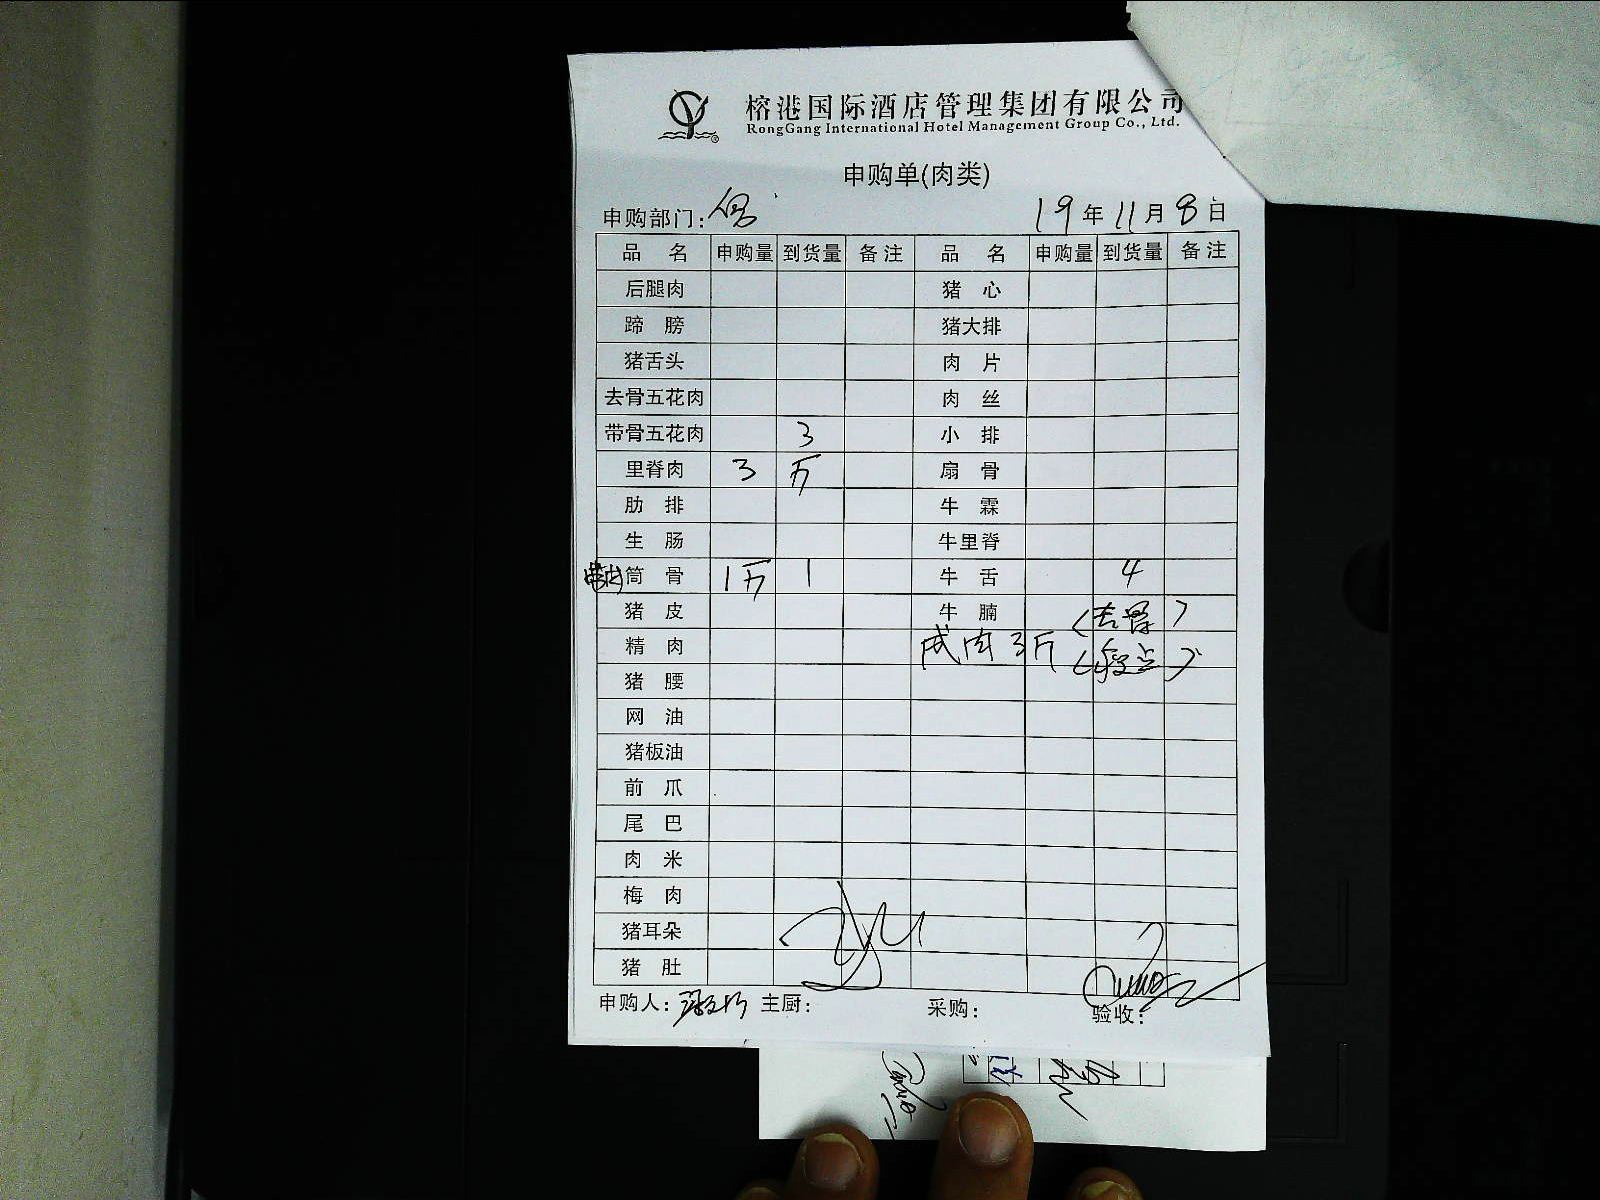 榕港国际酒店管理集团有限公司
RongGang International Hotel Management Group Co., Ltd.
申购单(肉类)
申购部门: 19年11月8日
品名 申购量 到货量 备注 品名 申购量 到货量 备注
后腿肉 猪心
蹄膀 猪大排
猪舌头 肉片
去骨五花肉 肉丝
带骨五花肉 3 小排
里脊肉 3 斤 扇骨
肋排 牛霖
生肠 牛里脊
筒骨 1斤 1 牛舌 4
猪皮 牛腩 (去骨)
精肉 咸肉3斤 (瘦点)
猪腰
网油
猪板油
前爪
尾巴
肉米
梅肉
猪耳朵
猪肚
申购人: 主厨: 采购: 验收: